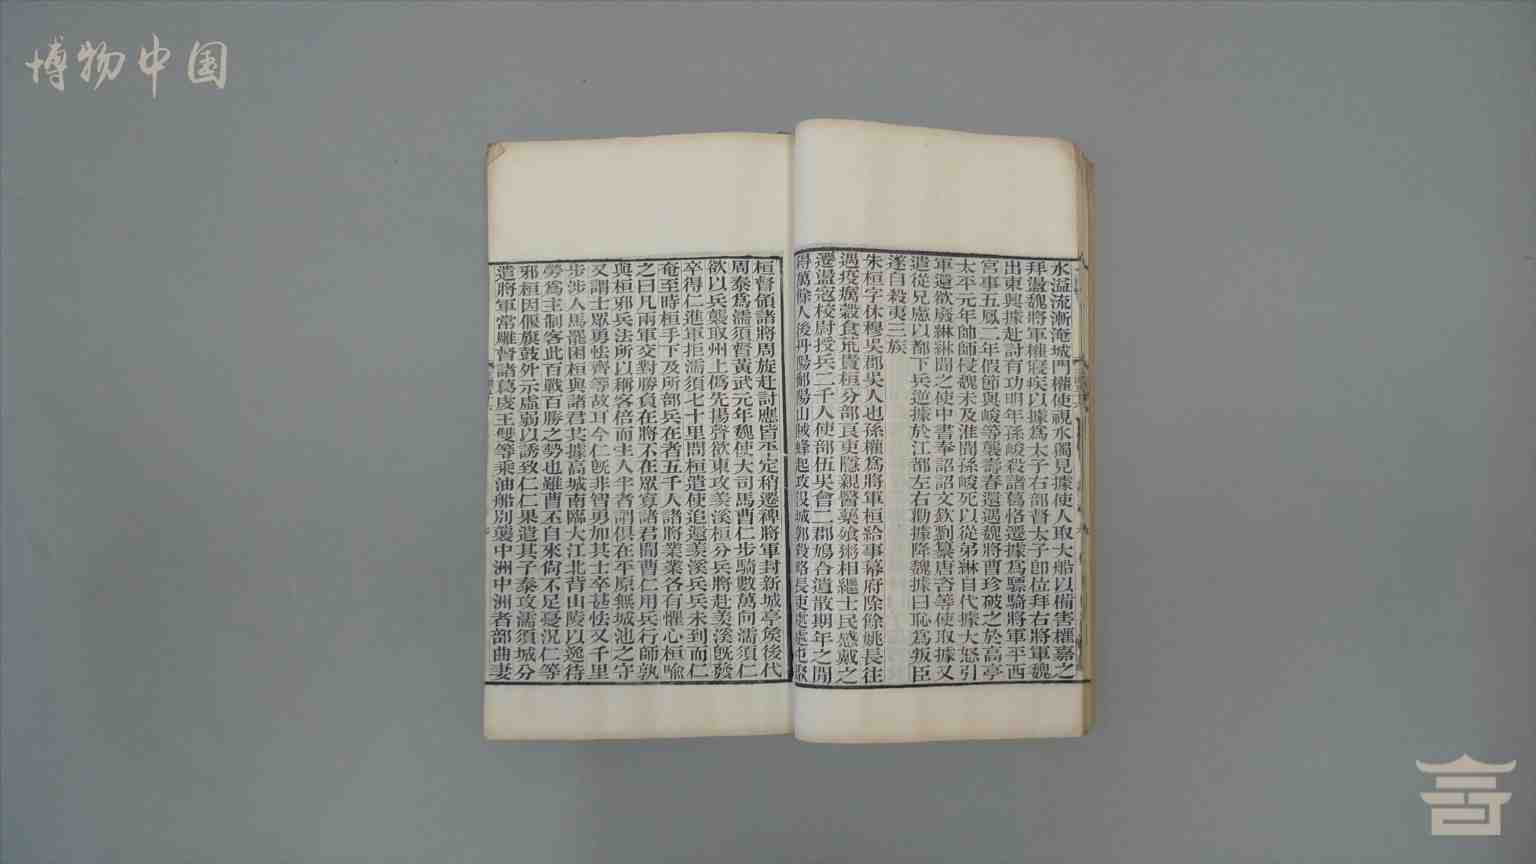 博物中国
水溢流漸淹城門權使視水獨見據使人取大船以備害權嘉之
拜盪魏將軍權寢疾以據爲太子右部督太子卽位拜右將軍魏
出東興據赴討有功明年孫峻殺諸葛恪遷據爲驃騎將軍平西
宮事五鳳二年假節與峻等襲壽春還遇魏將曹珍破之於高亭
太平元年帥師侵魏未及淮聞孫峻死以從弟綝自代據大怒引
軍還欲廢綝綝聞之使中書奉詔詔文欽劉纂唐咨等使取據又
遣從兄慮以都下兵逆據於江都左右勸據降魏據曰恥爲叛臣
遂自殺夷三族
朱桓字休穆吳郡吳人也孫權爲將軍桓給事幕府除餘姚長往
遇疫癘穀食荒貴桓分部良吏隱親醫藥飧粥相繼士民感戴之
遷盪寇校尉授兵二千人使部伍吳會二郡鳩合遺散期年之閒
得萬餘人後丹陽鄱陽山賊蜂起攻沒城郭殺略長吏處處屯聚
桓督領諸將周旋赴討應皆平定稍遷裨將軍封新城亭侯後代
周泰爲濡須督黃武元年魏使大司馬曹仁步騎數萬向濡須仁
欲以兵襲取州上僞先揚聲欲東攻羨溪桓分兵將赴羨溪旣發
卒得仁進軍拒濡須七十里問桓遣使追還羨溪兵兵未到而仁
奄至時桓手下及所部兵在者五千人諸將業業各有懼心桓喻
之曰凡兩軍交對勝負在將不在眾寡諸君聞曹仁用兵行師孰
與桓邪兵法所以稱客倍而主人半者謂俱在平原無城池之守
又謂士眾勇怯齊等故耳今仁旣非智勇加其士卒甚怯又千里
步涉人馬罷困桓與諸君共據高城南臨大江北背山陵以逸待
勞爲主制客此百戰百勝之勢也雖曹丕自來尙不足憂況仁等
邪桓因偃旗鼓外示虛弱以誘致仁仁果遣其子泰攻濡須城分
遣將軍常雕督諸葛虔王雙等乘油船別襲中洲中洲者部曲妻